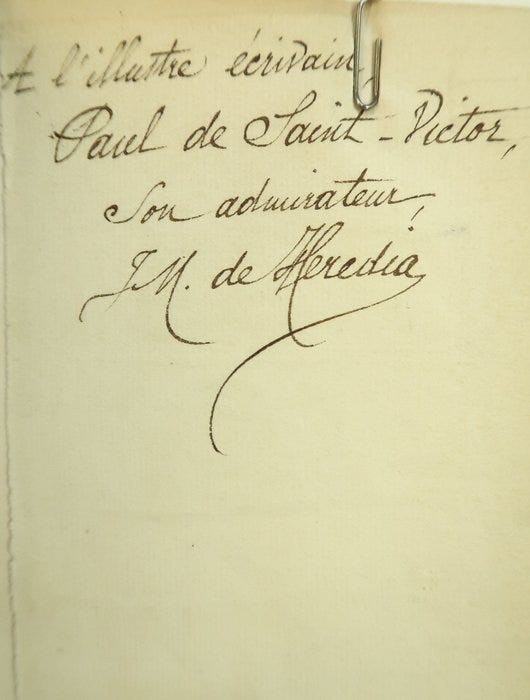 A l'illustre écrivain,
Paul de Saint-Victor,
Son admirateur,
J M. de Heredia